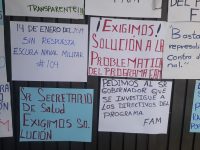 TRANSPARENTE!!
FAM
14 DE ENERO DEL
SIN RESPUESTA
ESCUELA NAVAL MILITAR
#104
¡EXIGIMOS!
SOLUCIÓN A LA
PROBLEMATICA
DEL PROGRAMA FAM
"Basta
represal
Contra d
nal."
SR SECRETARIO
DE SALUD
EXIGIMOS SO
LUCIÓN
PEDIMOS AL SR
GOBERNADOR QUE
SE INVESTIGUE A
LOS DIRECTIVOS DEL
PROGRAMA
FAM